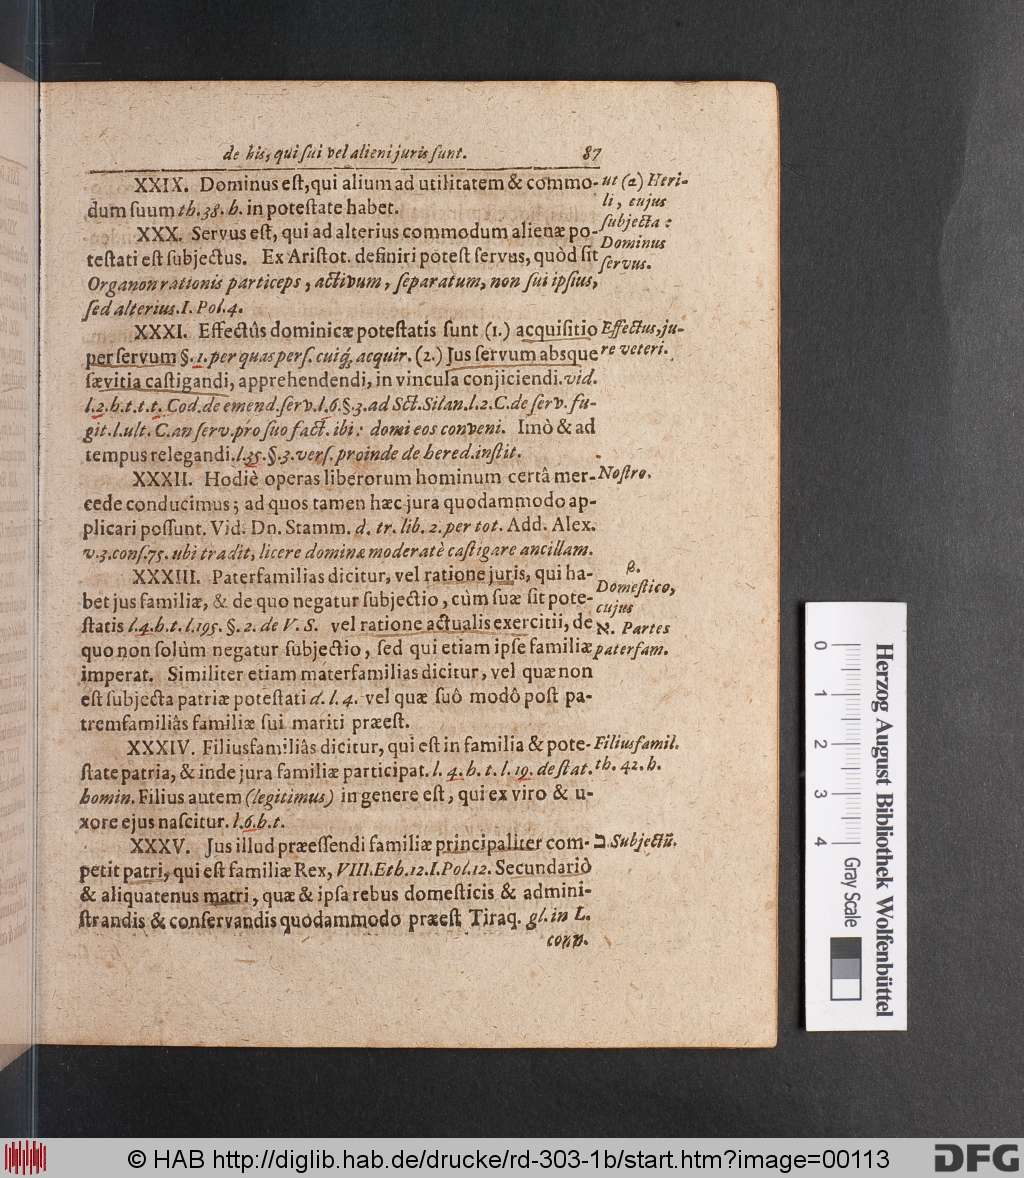 de his, qui ſui vel alieni juris ſunt. 87
XXIX. Dominus eſt, qui alium ad utilitatem & commo-
dum ſuum th. 38. h. in poteſtate habet.
XXX. Servus eſt, qui ad alterius commodum alienæ po-
teſtati eſt ſubjectus. Ex Ariſtot. definiri poteſt ſervus, quòd ſit
Organon rationis particeps, activum, ſeparatum, non ſui ipſius,
ſed alterius. I. Pol. 4.
ut (a) Heri-
li, cujus
ſubjecta:
Dominus
ſervus.
XXXI. Effectûs dominicæ poteſtatis ſunt (1.) acquiſitio
per ſervum §. 1. per quas perſ. cuiq́; acquir. (2.) Jus ſervum absque
ſævitia caſtigandi, apprehendendi, in vincula conjiciendi. vid.
l. 2. h. t. t. t. Cod. de emend. ſerv. l. 6. §. 3. ad Sct. Silan. l. 2. C. de ſerv. fu-
git. l. ult. C. an ſerv. pro ſuo fact. ibi: domi eos conveni. Imò & ad
tempus relegandi. l. 35. §. 3. verſ. proinde de hered. inſtit.
Effectus, ju-
re veteri.
XXXII. Hodiè operas liberorum hominum certâ mer-
cede conducimus; ad quos tamen hæc jura quodammodo ap-
plicari poſſunt. Vid. Dn. Stamm. d. tr. lib. 2. per tot. Add. Alex.
v. 3. conſ. 75. ubi tradit, licere dominæ moderatè caſtigare ancillam.
Noſtro.
XXXIII. Paterfamilias dicitur, vel ratione juris, qui ha-
bet jus familiæ, & de quo negatur ſubjectio, cùm ſuæ ſit pote-
ſtatis l. 4. h. t. l. 195. §. 2. de V. S. vel ratione actualis exercitii, de
quo non ſolùm negatur ſubjectio, ſed qui etiam ipſe familiæ
imperat. Similiter etiam materfamilias dicitur, vel quæ non
eſt ſubjecta patriæ poteſtati d. l. 4. vel quæ ſuô modô poſt pa-
tremfamiliâs familiæ ſui mariti præeſt.
β.
Domeſtico,
cujus
א. Partes
paterfam.
XXXIV. Filiusfamiliâs dicitur, qui eſt in familia & pote-
ſtate patria, & inde jura familiæ participat. l. 4. h. t. l. 19. de ſtat.
homin. Filius autem (legitimus) in genere eſt, qui ex viro & u-
xore ejus naſcitur. l. 6. h. t.
Filiusfamil.
th. 42. h.
XXXV. Jus illud præeſſendi familiæ principaliter com-
petit patri, qui eſt familiæ Rex, VIII. Eth. 12. I. Pol. 12. Secundariò
& aliquatenus matri, quæ & ipſa rebus domeſticis & admini-
ſtrandis & conſervandis quodammodo præeſt Tiraq. gl. in L.
conn.
ב Subjectũ.
0 1 2 3 4
Gray Scale
Herzog August Bibliothek Wolfenbüttel
© HAB http://diglib.hab.de/drucke/rd-303-1b/start.htm?image=00113
DFG